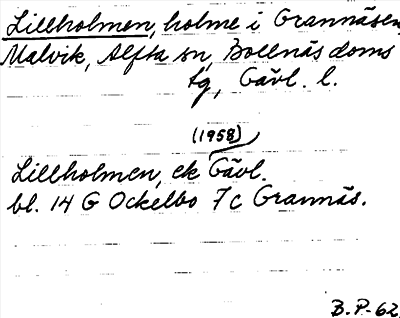 Lillholmen, holme i Grannäsen,
Malvik, Alfta sn, Bollnäs doms
tg, Gävl. l.
(1958)
Lillholmen, ek Gävl.
bl. 14 G Ockelbo 7c Grannäs.
B.P-62.